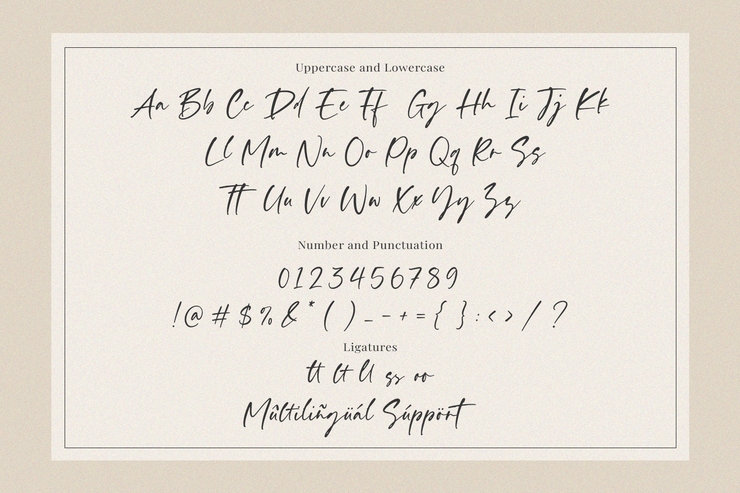 Uppercase and Lowercase
Aa Bb Cc Dd Ee Ff Gg Hh Ii Jj Kk
Ll Mm Nn Oo Pp Qq Rr Ss
Tt Uu Vv Ww Xx Yy Zz
Number and Punctuation
0123456789
!@#$%&*()_-+={}:<>/?
Ligatures
tt lt ll ss oo
Múltiliñgüál Súppört